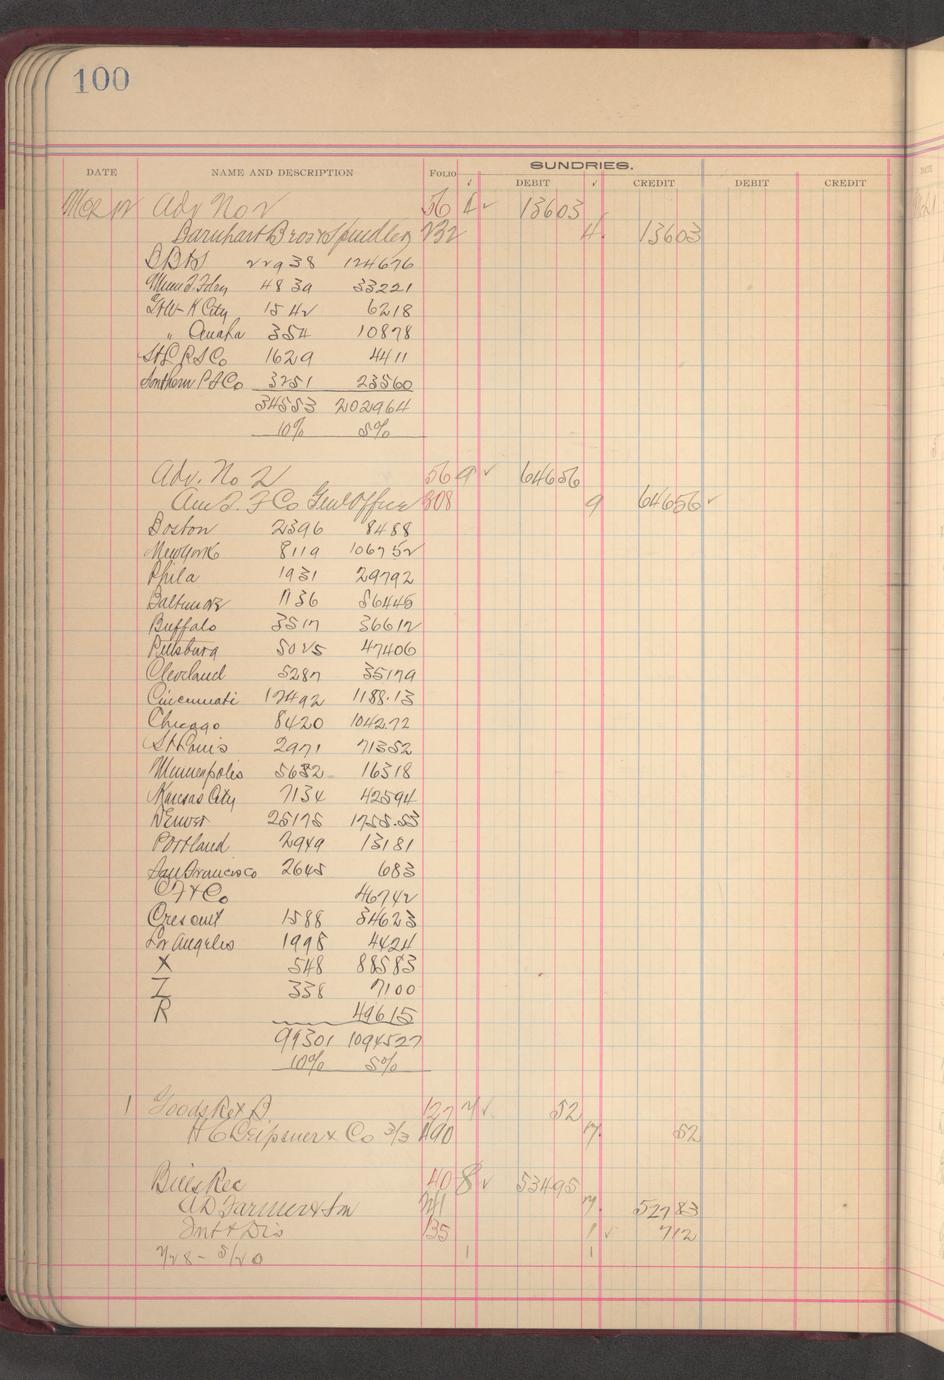 100
SUNDRIES.
DATE NAME AND DESCRIPTION FOLIO ✓ DEBIT ✓ CREDIT DEBIT CREDIT
Adv No 2 56 4 ✓ 13603
Barnhart Bros & Spindler 232 4. 13603
BB&S 22938 124676
Minn T. Fdry 4839 33221
GtW- K City 1542 6218
" Omaha 354 10878
StL P S Co 1629 4411
Southern P S Co 3251 23560
34553 202964
10% 5%
Adv. No 2 56 9 ✓ 64656
Am T. F Co Genl Office 308 9 64656 ✓
Boston 2396 8488
New York 8119 106752
Phila 1931 29792
Baltimore 1736 56445
Buffalo 3517 36612
Pittsburg 5025 47406
Cleveland 5287 35179
Cincinnati 12492 1188.13
Chicago 8420 104272
St Louis 2971 71352
Minneapolis 5632 16318
Kansas City 7134 42594
Denver 25175 1755.53
Portland 2949 13181
San Francisco 2645 683
CF & Co 46742
Crescent 1588 34623
Los Angeles 1998 4424
X 548 88583
Z 338 7100
R 49615
99301 1094527
10% 5%
1 Goods Ret D 127 7 ✓ 52
& Co 3/3 490 7. 52
Bills Rec 40 8 ✓ 53495
A D Farmer & Son 241 7. 52783
Int & Dis 135 1 ✓ 712
2/28 - 5/20 1 1